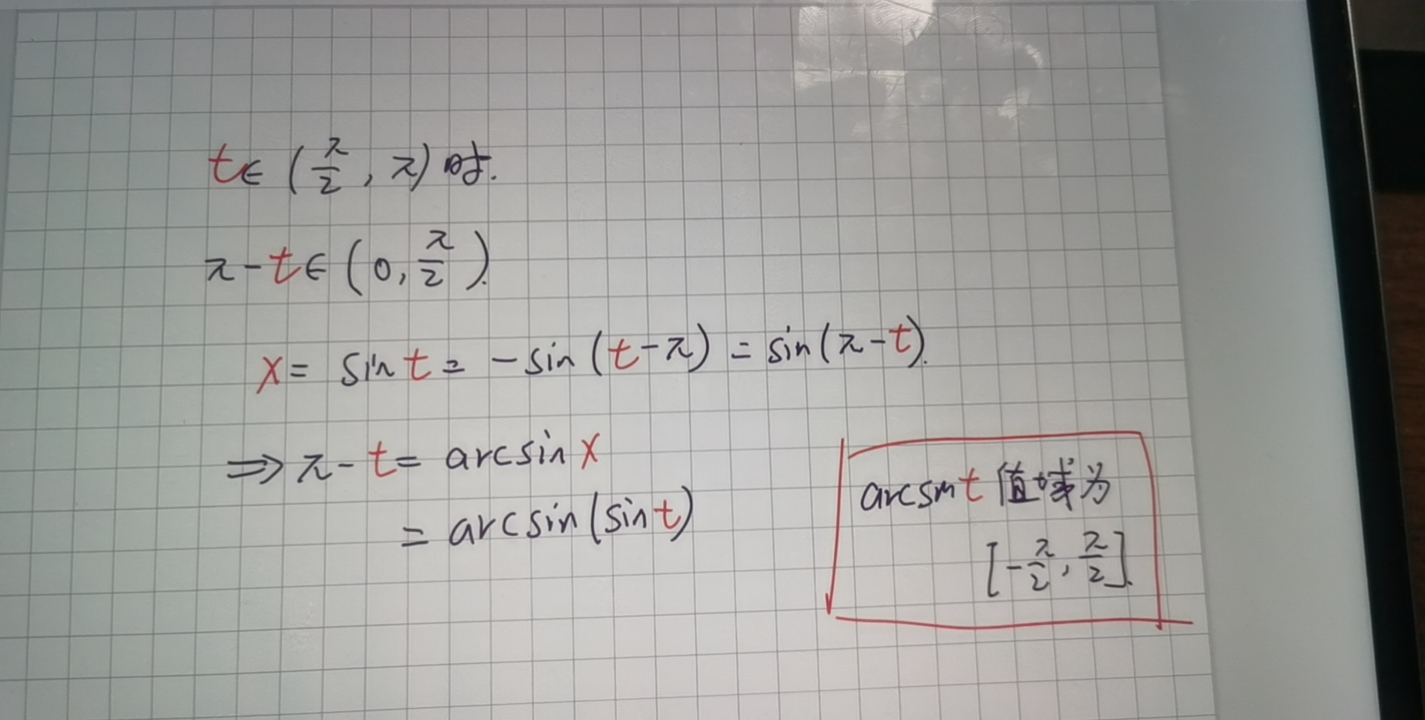 t∈(π/2, π)时.
π-t∈(0, π/2).
x= sint= -sin(t-π)=sin(π-t).
⇒π-t= arcsinx
= arcsin(sint)
arcsint值域为
[-π/2, π/2].